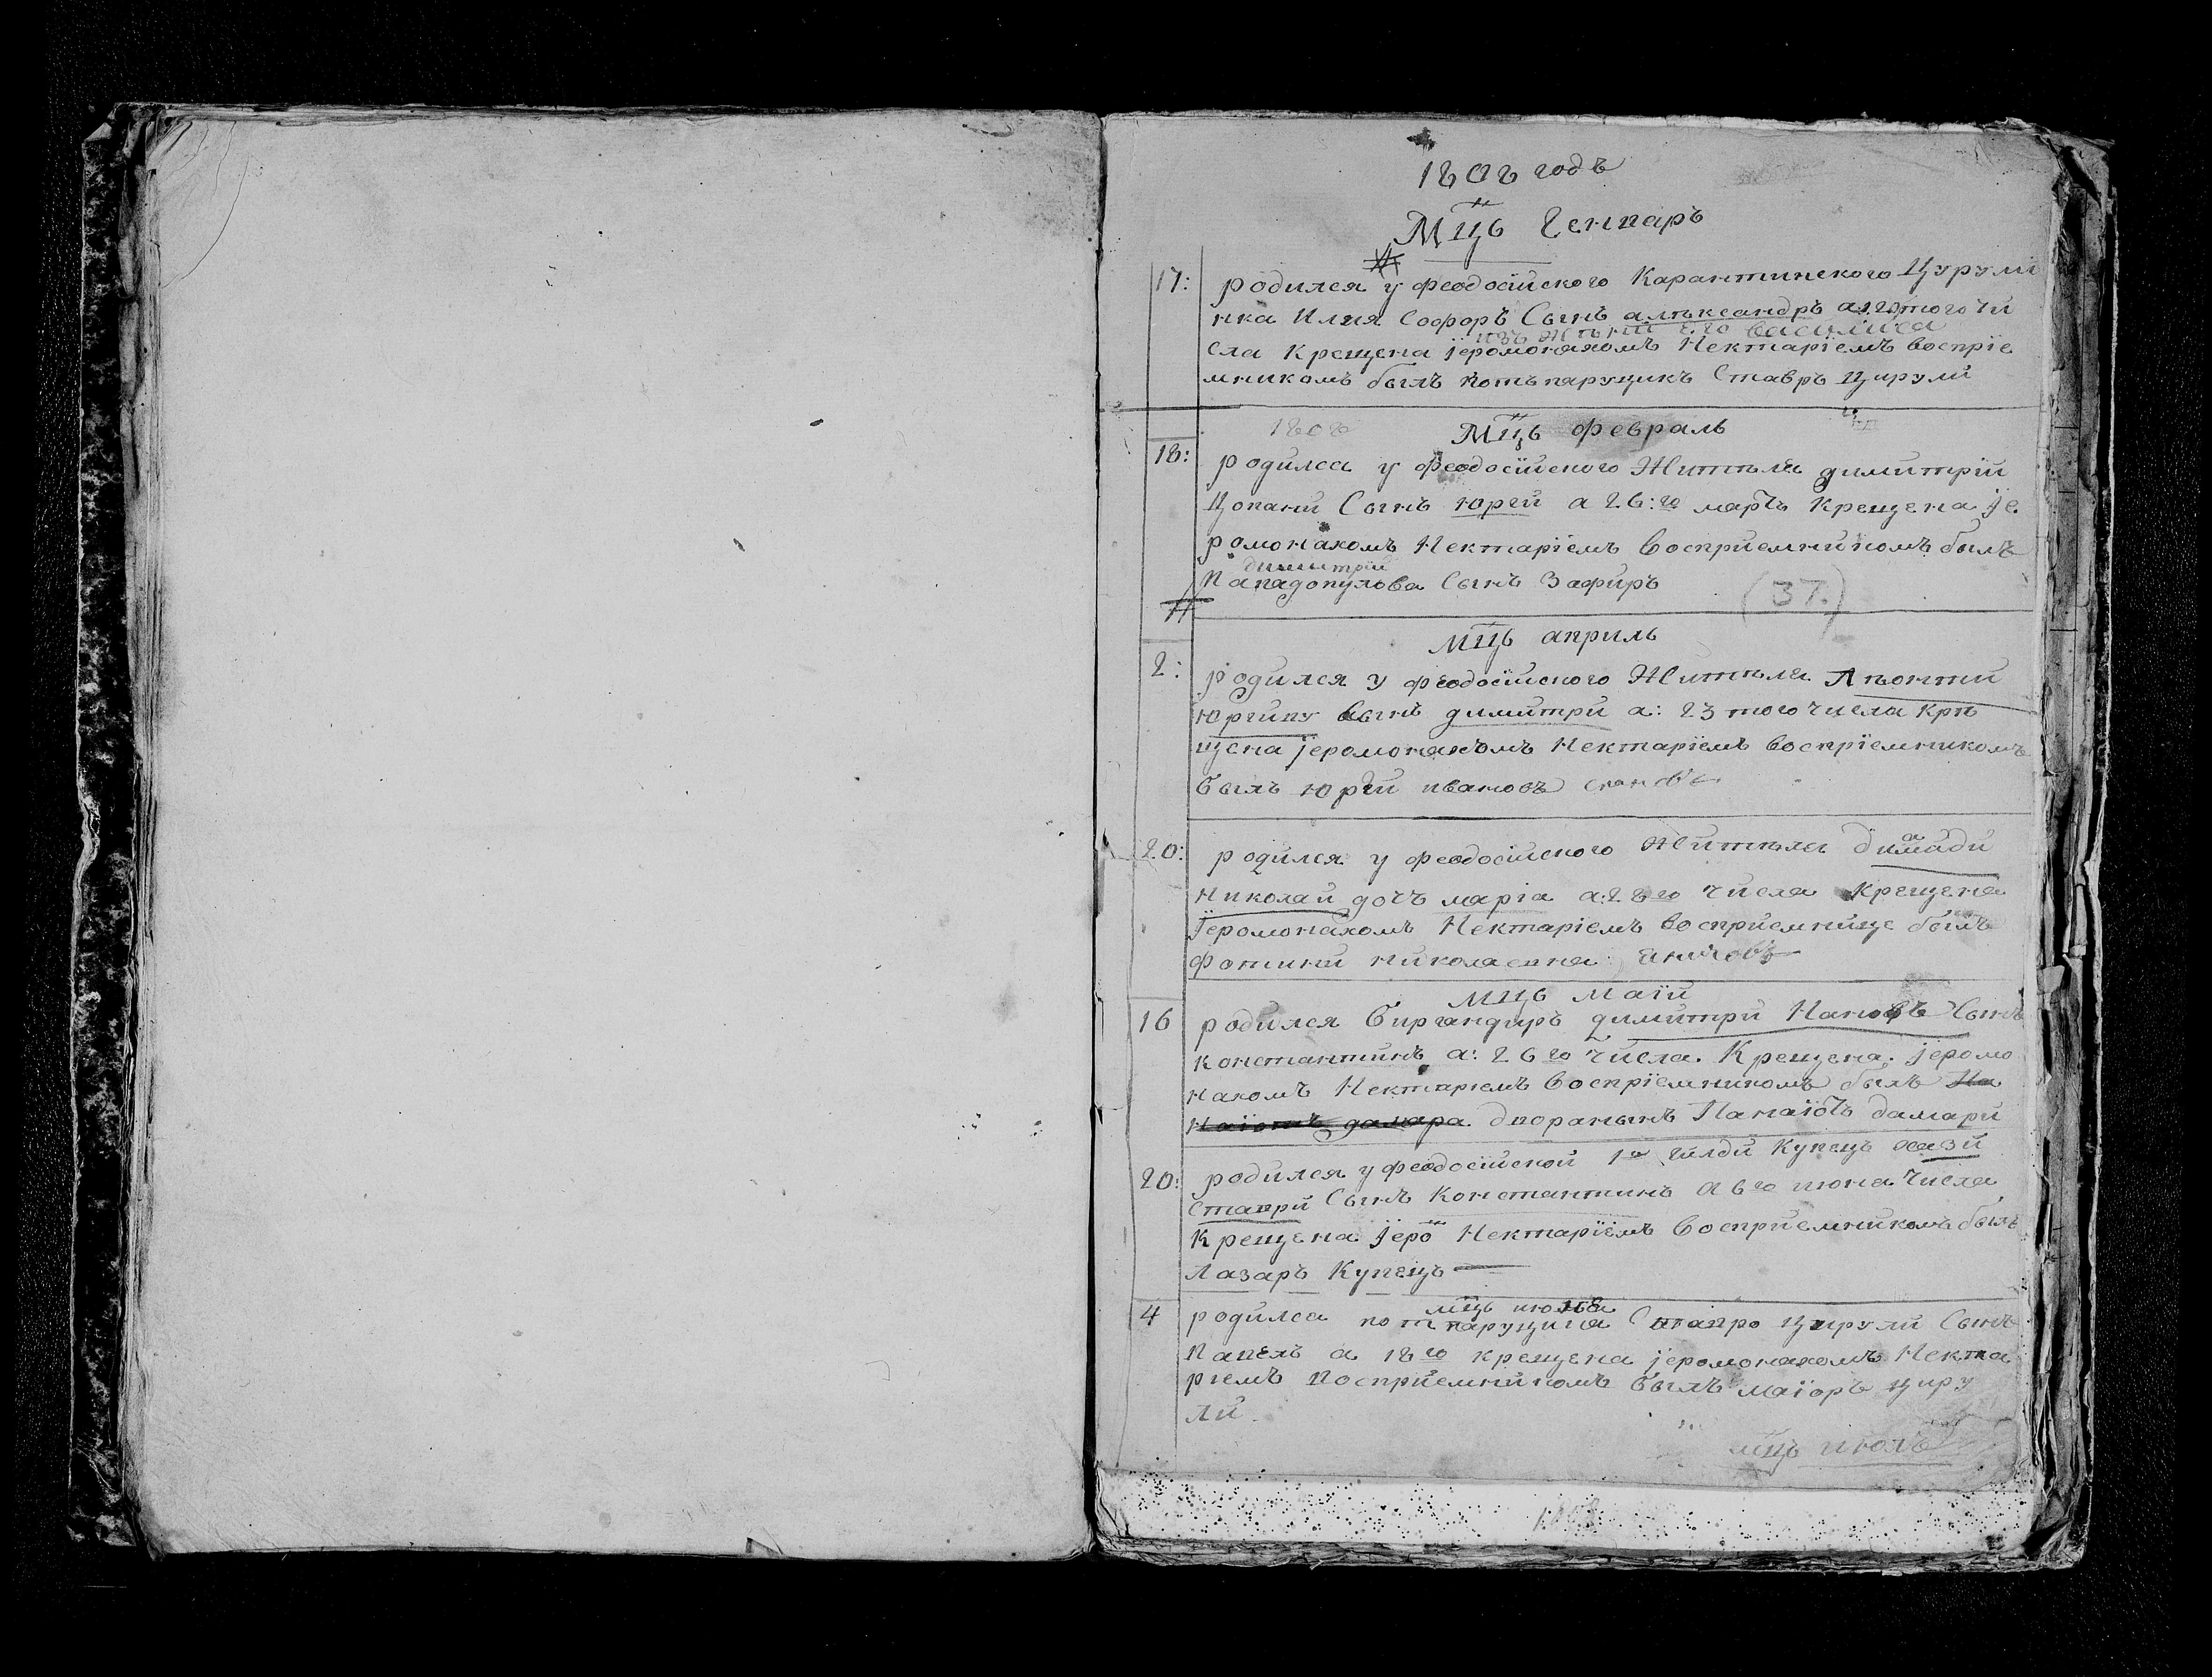 1808 годъ
Мцъ Генпаръ
17: родился у феодосїйского Карантинского Цурули
ика Илия Софоръ Сынъ алѣксандръ а 22 того чи
изъ жѣнїи его василиса
сла Крещена їеромонахомъ Нектарїемъ воспріе
мникомъ былъ потъпарущикъ Ставръ Цирули
1808
Мцъ февраль
18: родилса у феодосїйского Жителя димитрїй
Цопаний Сынъ Юргй а 26:го мартъ Крещена їе
ромонахомъ Нектарїемъ восприемникомъ былъ
димитрїй
Пападопулова Сынъ Зафиръ
(37.)
мцъ априль
2: родился у феодосїйского Жителя Лѣонти
Юргиву сынъ димитри а: 23 того числа Крѣ
щена їеромонахомъ Нектарїемъ воспрїемникомъ
былъ Юргй ивановъ
20: родился у феодосїйского Жителя димади
Николай дочъ марїа а: 28го числа Крещена
Їеромонахомъ Нектарїемъ восприемнице былъ
Фотиний николаевна
мцъ маїй
16 родился биргандиръ димитри Нановъ Сынъ
константинъ а: 26го числа. Крещена. їеромо
нахомъ Нектарїемъ воспрїемникомъ былъ Па
наїотъ дамара двораныкъ Панаїотъ дамари
20: родился у феодосїйской 1й гилди Купецъ хази
Ставри Сынъ Константинъ а 6го июна числа
Крещена Їеро Нектарїемъ восприемникомъ былъ
Лазаръ Купецъ
мцъ июнъ
4 родилса потпарущика Ставро Цирули Сынъ
Павелъ а 18го крещена їеромонахомъ Некта
риемъ восприемникомъ былъ маїоръ циру
ли.
мцъ июлъ